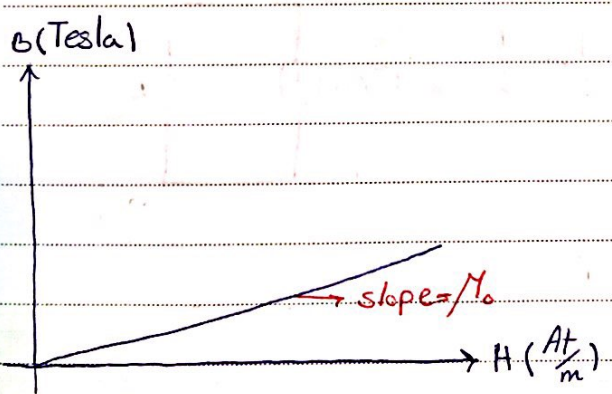 B(Tesla)
slope=μ₀
H (At/m)